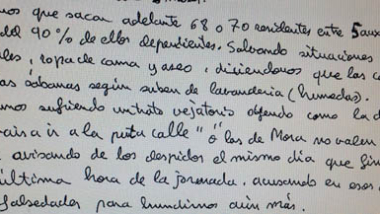 nos que sacan adelante 68 o 70 residentes entre 5 aux
del 90% de ellos dependientes. Salvando situaciones
les, ropa de cama y aseo, diciendonos que las c
as sábanas según suben de lavanderia (humedas).
mos sufriendo un trato vejatorio oyendo como la d
vais a ir a la puta calle" o "las de Mora no valen
avisando de los despidos el mismo dia que fin
última hora de la jornada, acusando en esos
falsedades para hundirnos aún más.